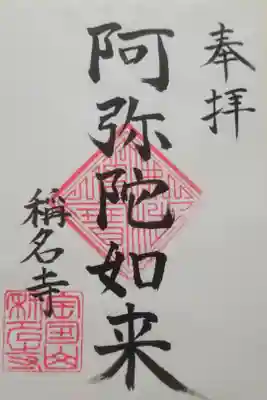 奉拝
阿弥陀如来
稱名寺